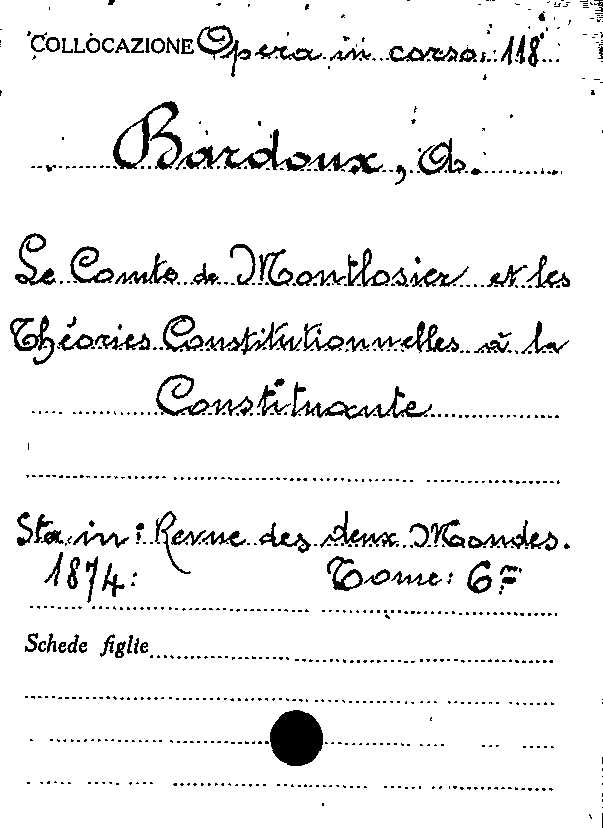 COLLOCAZIONE Opera in corso: 118
Bardoux, A.
Le Comte de Montlosier et les
Théories Constitutionnelles à la
Constituante
Sta in: Revue des deux Mondes.
1874: Tome: 6º
Schede figlie